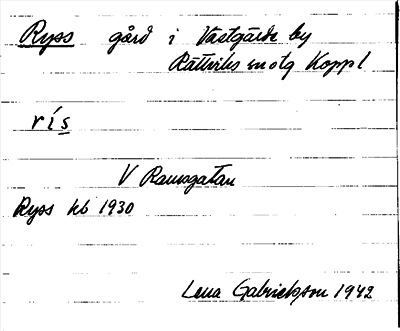 Ryss gård i Västgärde by
Rättviks sn o tg Koppl
rís
V Ramsgatan
Ryss kb 1930
Lena Gabrielsson 1942